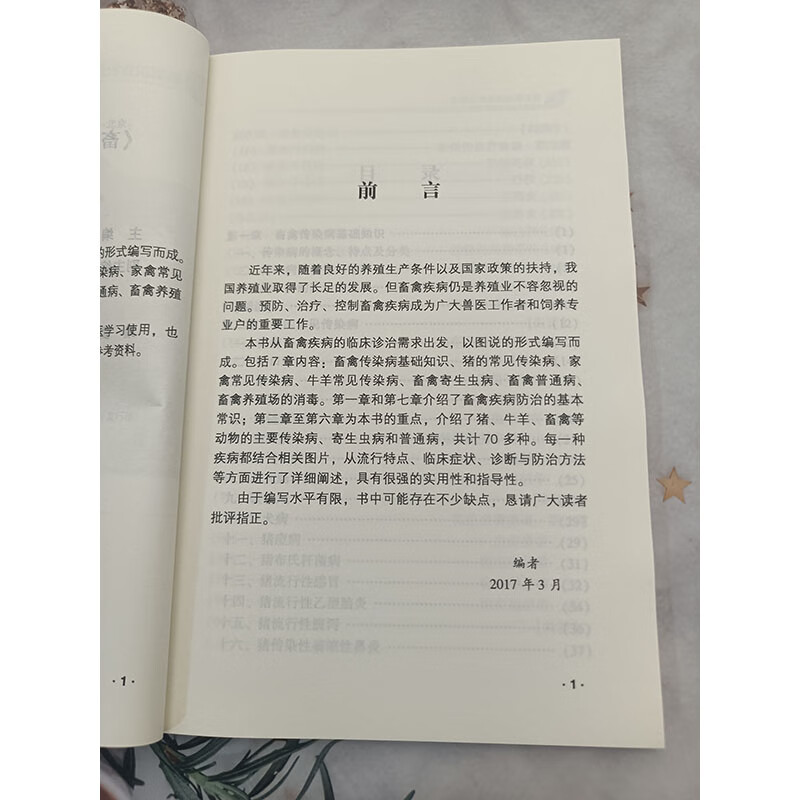 的形式编写而成。
染病、家禽常见
通病、畜禽养殖
医学习使用，也
参考资料。
·1·
前 言
近年来，随着良好的养殖生产条件以及国家政策的扶持，我
国养殖业取得了长足的发展。但畜禽疾病仍是养殖业不容忽视的
问题。预防、治疗、控制畜禽疾病成为广大兽医工作者和饲养专
业户的重要工作。
本书从畜禽疾病的临床诊治需求出发，以图说的形式编写而
成。包括7章内容：畜禽传染病基础知识、猪的常见传染病、家
禽常见传染病、牛羊常见传染病、畜禽寄生虫病、畜禽普通病、
畜禽养殖场的消毒。第一章和第七章介绍了畜禽疾病防治的基本
常识；第二章至第六章为本书的重点，介绍了猪、牛羊、畜禽等
动物的主要传染病、寄生虫病和普通病，共计70多种。每一种
疾病都结合相关图片，从流行特点、临床症状、诊断与防治方法
等方面进行了详细阐述，具有很强的实用性和指导性。
由于编写水平有限，书中可能存在不少缺点，恳请广大读者
批评指正。
编者
2017年3月
·1·